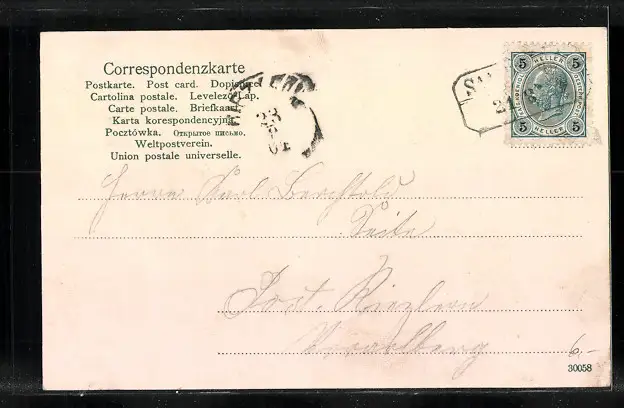 Correspondenzkarte
Postkarte. Post card. Dopisnice.
Cartolina postale. Levelező-Lap.
Carte postale. Briefkaart.
Karta korespondencyjna.
Pocztówka. Открытое письмо.
Weltpostverein.
Union postale universelle.
5 HELLER 5
5 HELLER 5
Herrn Karl Berchtold
Post. Riezlern
Vorarlberg
6,-
30058